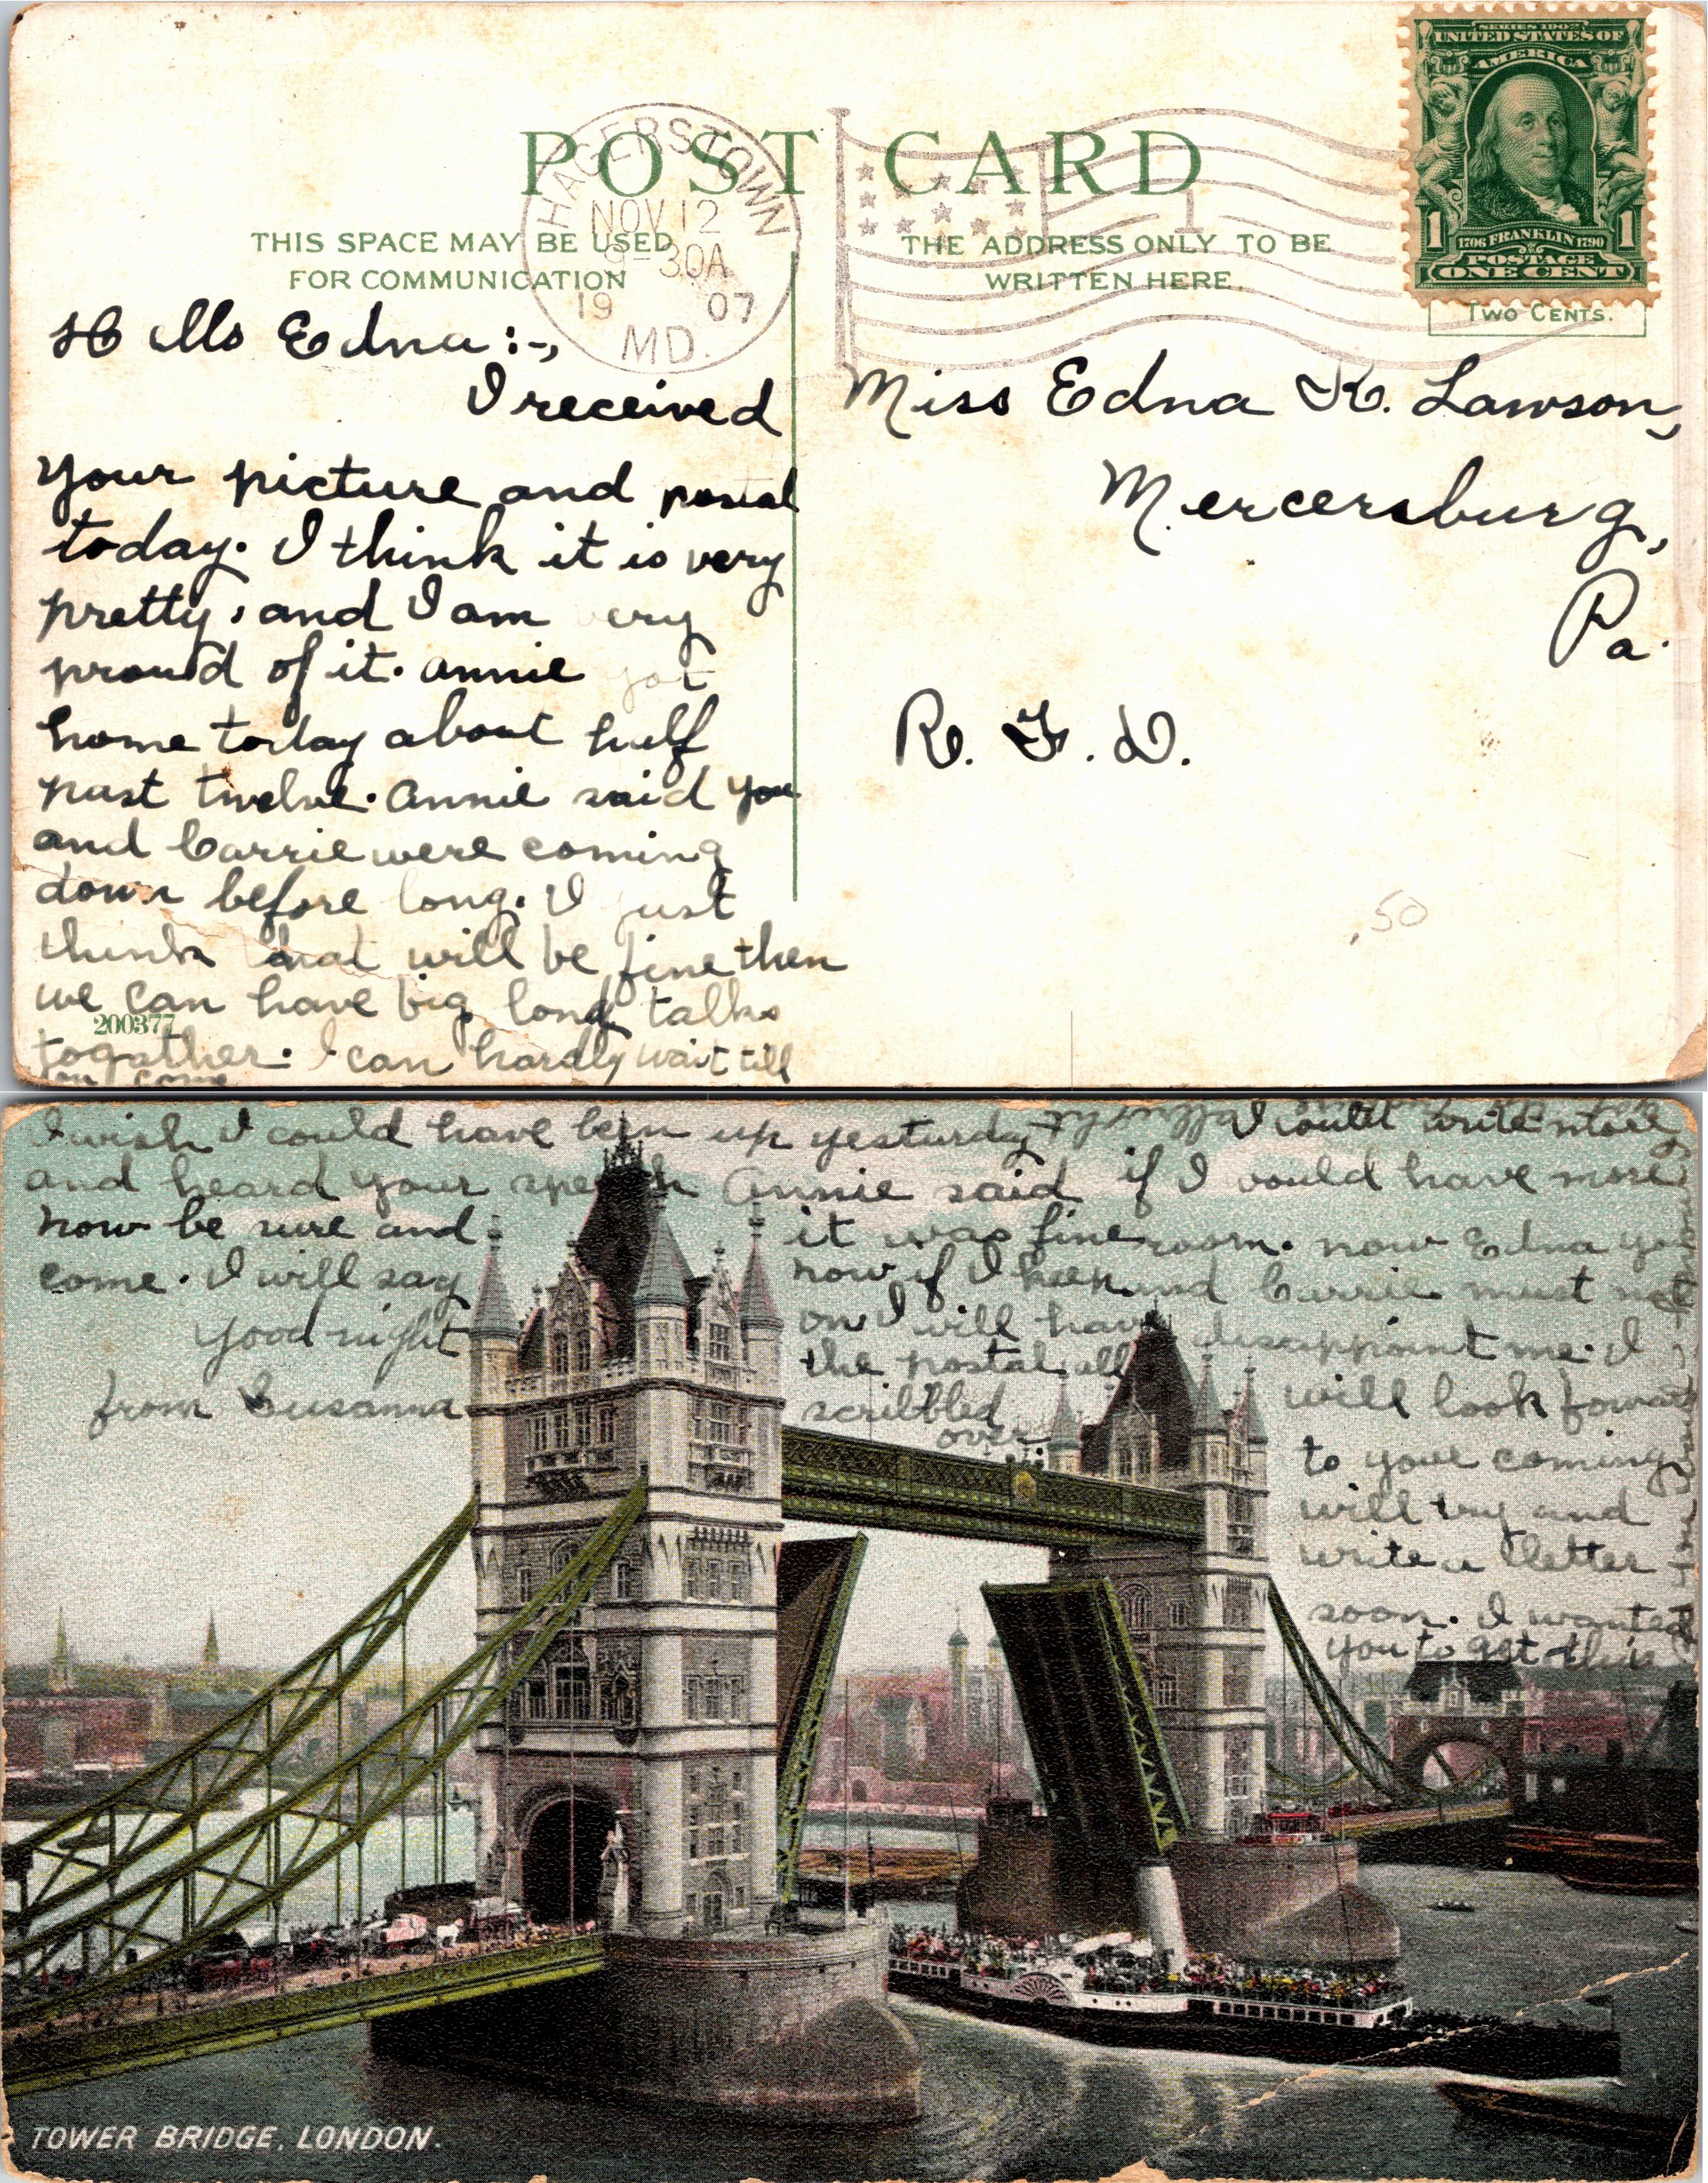 POST CARD
THIS SPACE MAY BE USED
FOR COMMUNICATION
THE ADDRESS ONLY TO BE
WRITTEN HERE.
HAGERSTOWN
NOV 12
30A
19 07
MD.
1
SERIES 1902
UNITED STATES OF
AMERICA
1 1
1706 FRANKLIN 1790
POSTAGE
ONE CENT
TWO CENTS.
Hello Edna:-,
I received
your picture and postal
today. I think it is very
pretty, and I am very
proud of it. Annie got
home today about half
past twelve. Annie said you
and Carrie were coming
down before long. I just
think that will be fine then
we can have big long talks
togather. I can hardly wait till
come
200377
Miss Edna K. Lawson,
Mercersburg,
Pa.
R. F. D.
.50
I wish I could have been up yesturday
and heard your speech Annie said
it was fine
now if I keep
on I will have
the postal all
scribbled
over
now be sure and
come. I will say
good night
from Susanna
I could write more
if I would have more
room. now Edna you
and Carrie must not
disappoint me. I
will look foward
to your coming
will try and
write a letter
soon. I wanted
you to get this
TOWER BRIDGE, LONDON.